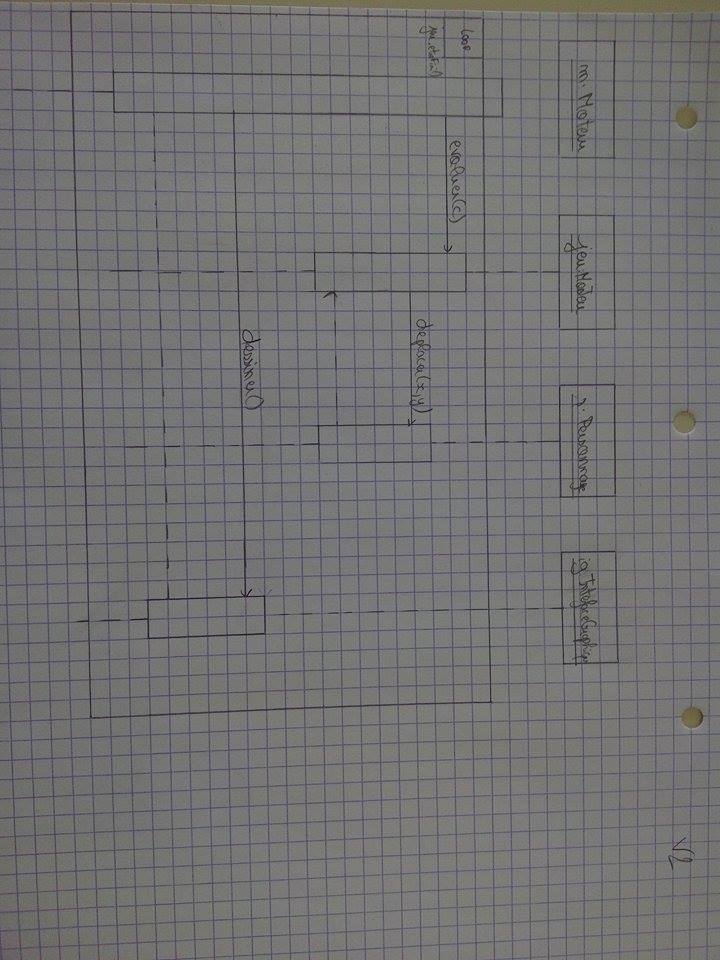 V2
m: Moteur
jeu: Moteur
: Personnage
ig: InterfaceGraphique
loop
evaluer(c)
deplacer(x,y)
dessiner()